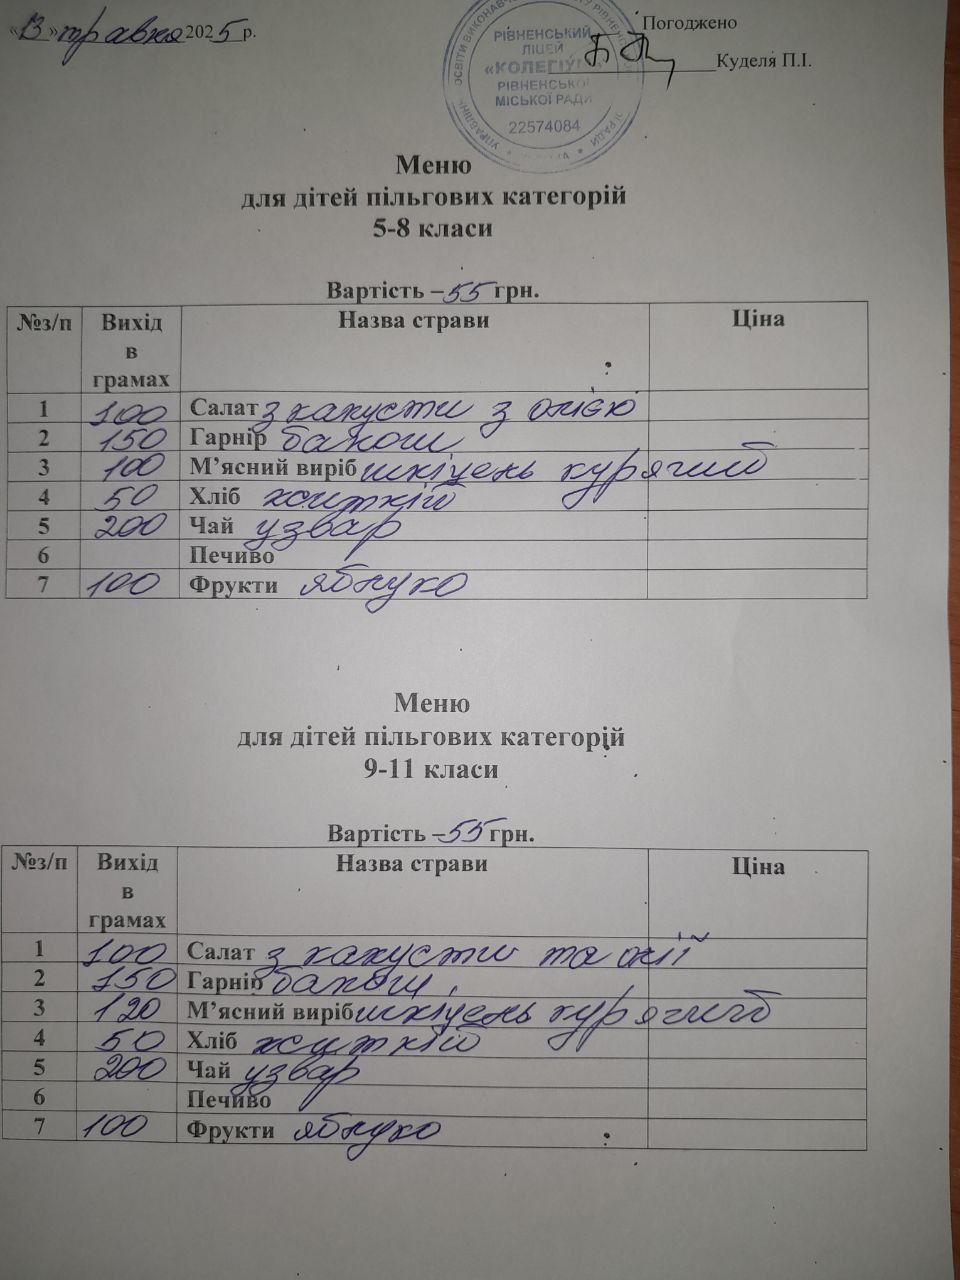 «13» травня 2025 р.
Погоджено
Куделя П.І.
РІВНЕНСЬКИЙ
ЛІЦЕЙ
«КОЛЕГІУМ»
РІВНЕНСЬКОЇ
МІСЬКОЇ РАДИ
22574084
Меню
для дітей пільгових категорій
5-8 класи
Вартість – 55 грн.
№з/п Вихід в грамах Назва страви Ціна
1 100 Салат з капусти з олією
2 150 Гарнір банош
3 100 М’ясний виріб шніцень курячий
4 50 Хліб житній
5 200 Чай узвар
6 Печиво
7 100 Фрукти яблуко
Меню
для дітей пільгових категорій
9-11 класи
Вартість – 55 грн.
№з/п Вихід в грамах Назва страви Ціна
1 100 Салат з капусти та олії
2 150 Гарнір банош
3 120 М’ясний виріб шніцень курячий
4 50 Хліб житній
5 200 Чай узвар
6 Печиво
7 100 Фрукти яблуко